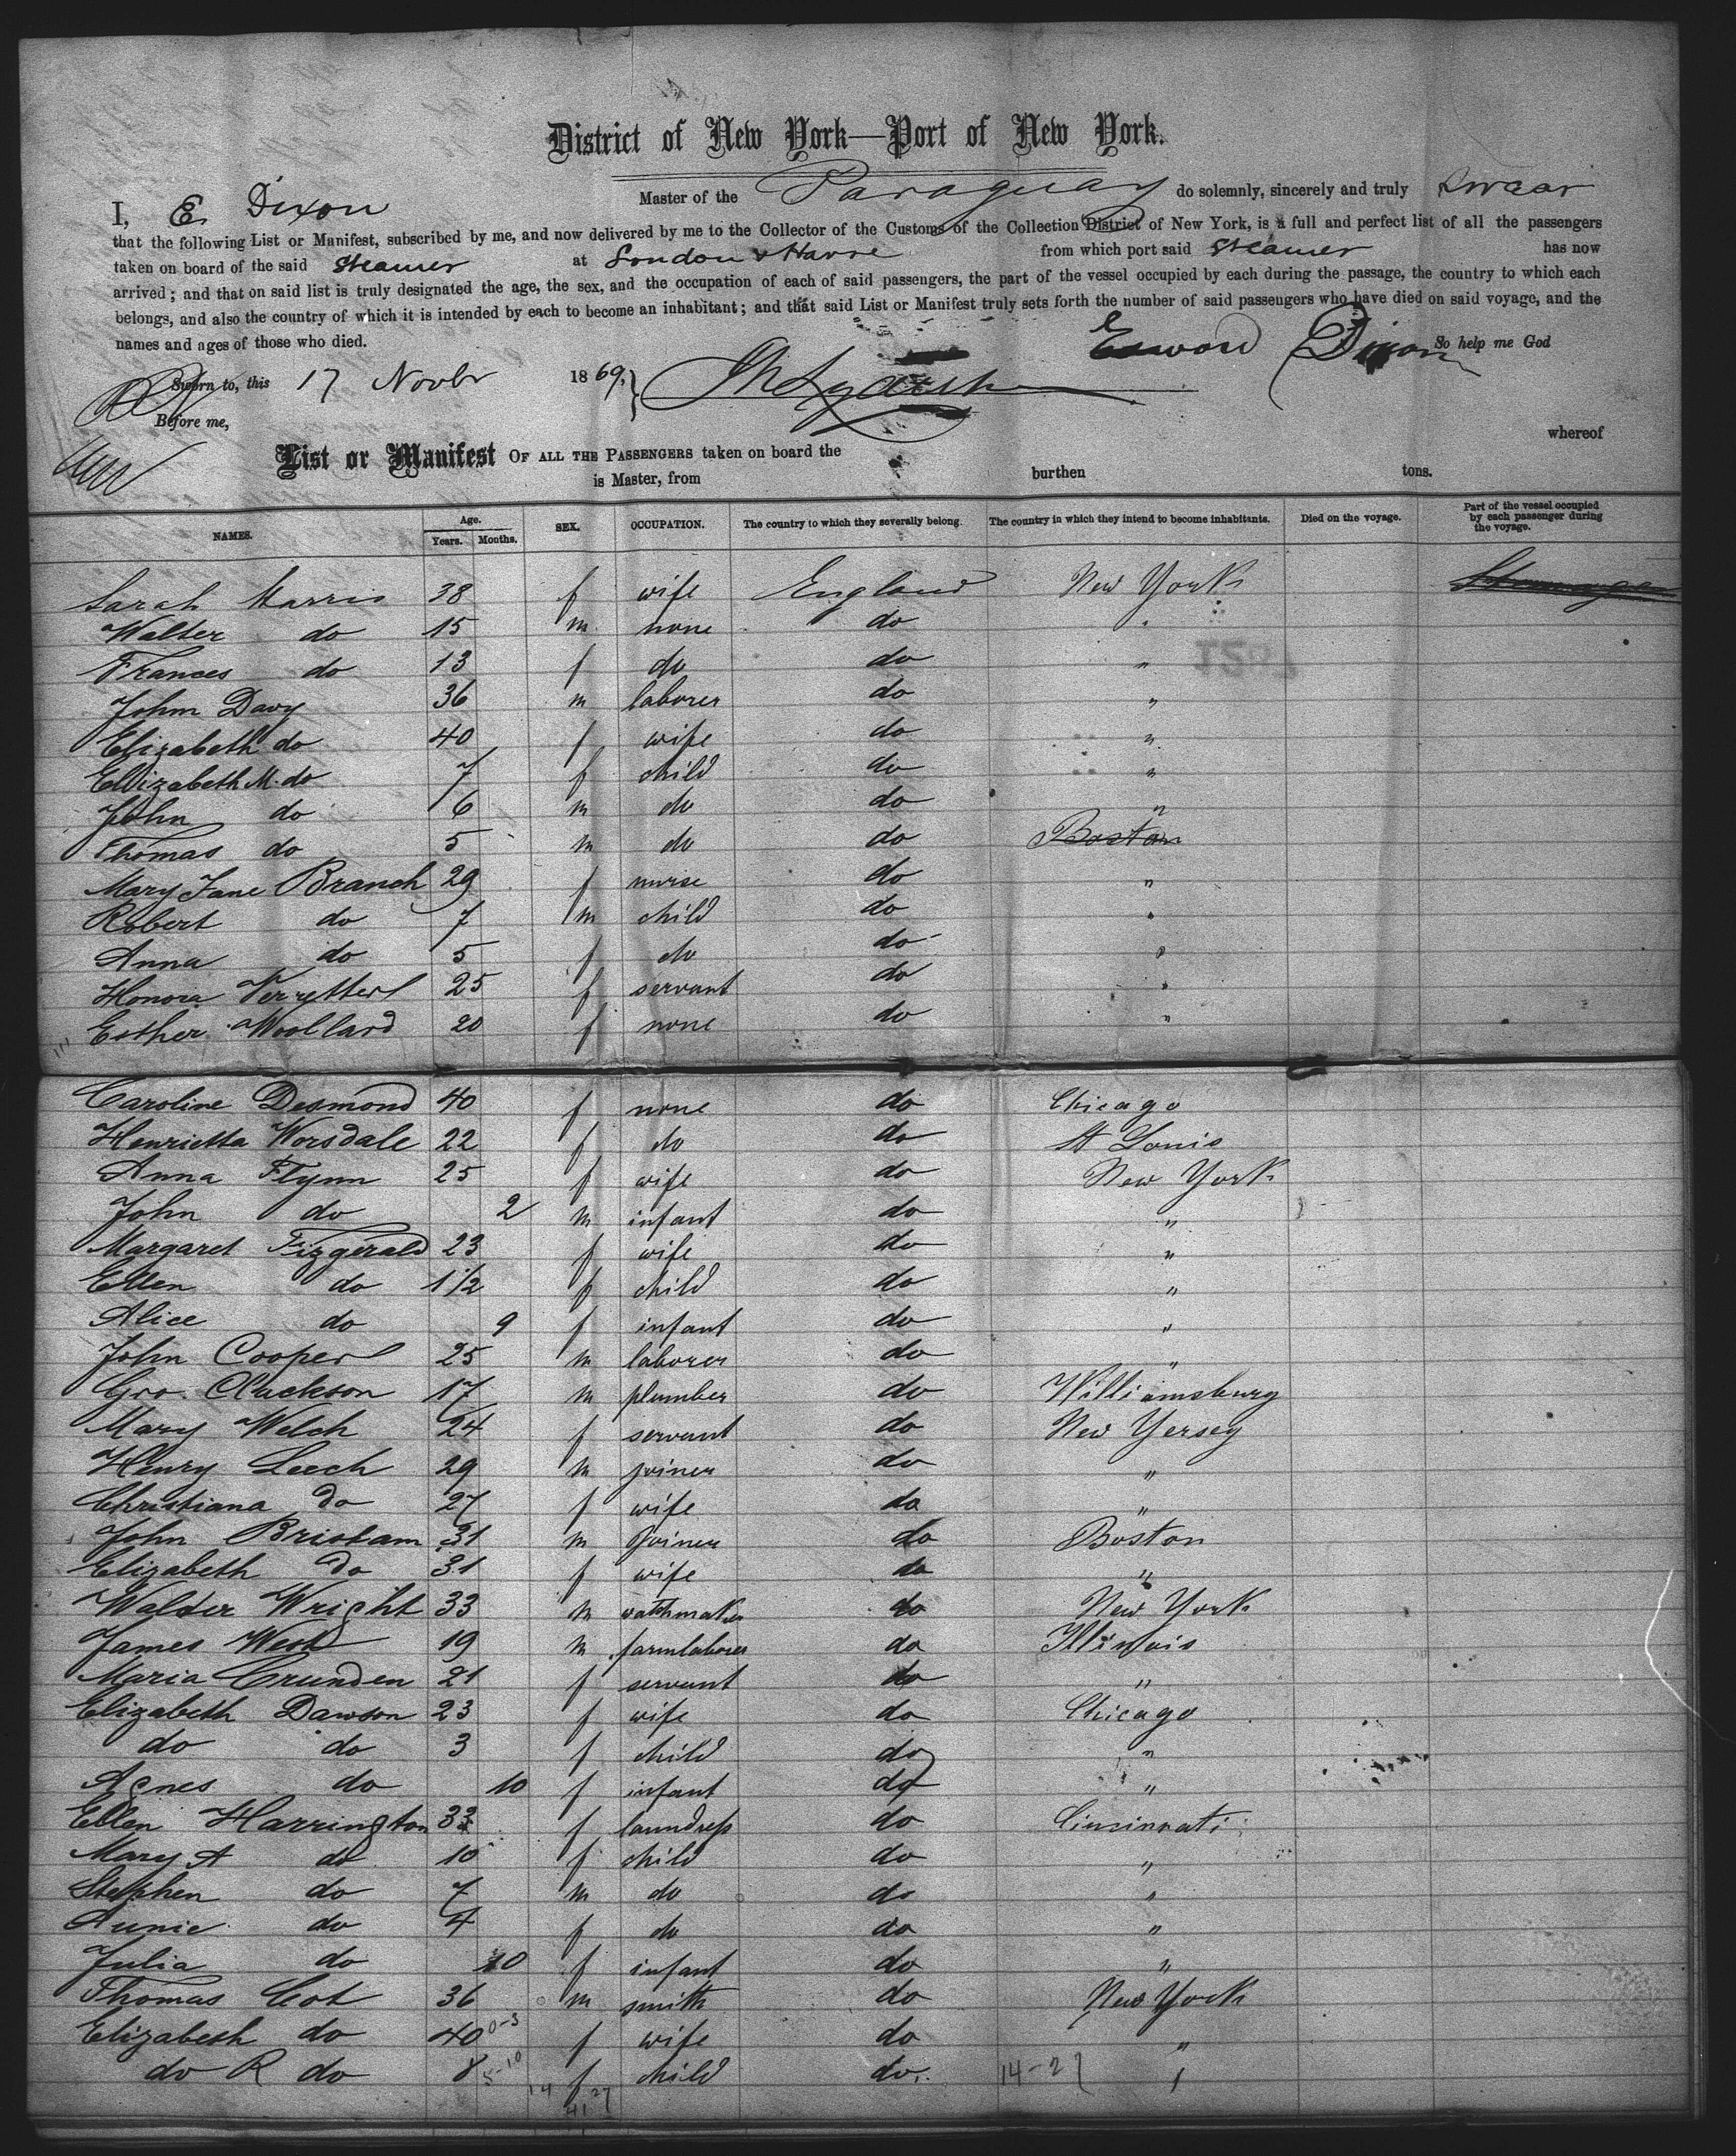 District of New York—Port of New York.
I, E Dixon Master of the Paraguay do solemnly, sincerely and truly swear
that the following List or Manifest, subscribed by me, and now delivered by me to the Collector of the Customs of the Collection District of New York, is a full and perfect list of all the passengers
taken on board of the said Steamer at London & Havre from which port said Steamer has now
arrived; and that on said list is truly designated the age, the sex, and the occupation of each of said passengers, the part of the vessel occupied by each during the passage, the country to which each
belongs, and also the country of which it is intended by each to become an inhabitant; and that said List or Manifest truly sets forth the number of said passengers who have died on said voyage, and the
names and ages of those who died. Edward Dixon So help me God
Sworn to, this 17 Novbr 1869,
Before me,
List or Manifest OF ALL THE PASSENGERS taken on board the whereof
is Master, from burthen tons.
NAMES. Age. Years. Months. SEX. OCCUPATION. The country to which they severally belong. The country in which they intend to become inhabitants. Died on the voyage. Part of the vessel occupied by each passenger during the voyage.
Sarah Harris 38 f wife England New York
Walter do 15 m none do "
Frances do 13 f do do "
John Davy 36 m laborer do "
Elizabeth do 40 f wife do "
Elizabeth M. do 7 f child do "
John do 6 m do do "
Thomas do 5 m do do Boston
Mary Jane Branch 29 f nurse do "
Robert do 7 m child do "
Anna do 5 f do do "
Honora 25 f servant do "
Esther Woollard 20 f none do "
Caroline Desmond 40 f none do Chicago
Henrietta Worsdale 22 f do do St Louis
Anna Flynn 25 f wife do New York
John do 2 m infant do "
Margaret Fizgerald 23 f wife do "
Ellen do 1 1/2 f child do "
Alice do 9 f infant do "
John Cooper 25 m laborer do "
Geo. Cluckson 17 m plumber do Williamsburg
Mary Welch 24 f servant do New Yersey
Henry Leech 29 m joiner do "
Christiana do 27 f wife do "
John Bristam 31 m Joiner do Boston
Elizabeth do 31 f wife do "
Walter Wright 33 m watchmaker do New York
James West 19 m farmlaborer do Illinois
Maria Crunden 21 f servant do "
Elizabeth Dawson 23 f wife do Chicago
do do 3 f child do "
Agnes do 10 f infant do "
Ellen Harrington 33 f laundress do Cincinnati
Mary A do 10 f child do "
Stephen do 7 m do do "
Annie do 4 f do do "
Julia do 10 f infant do "
Thomas Cot 36 m smith do New York
Elizabeth do 40 f wife do "
do R do 8 f child do "